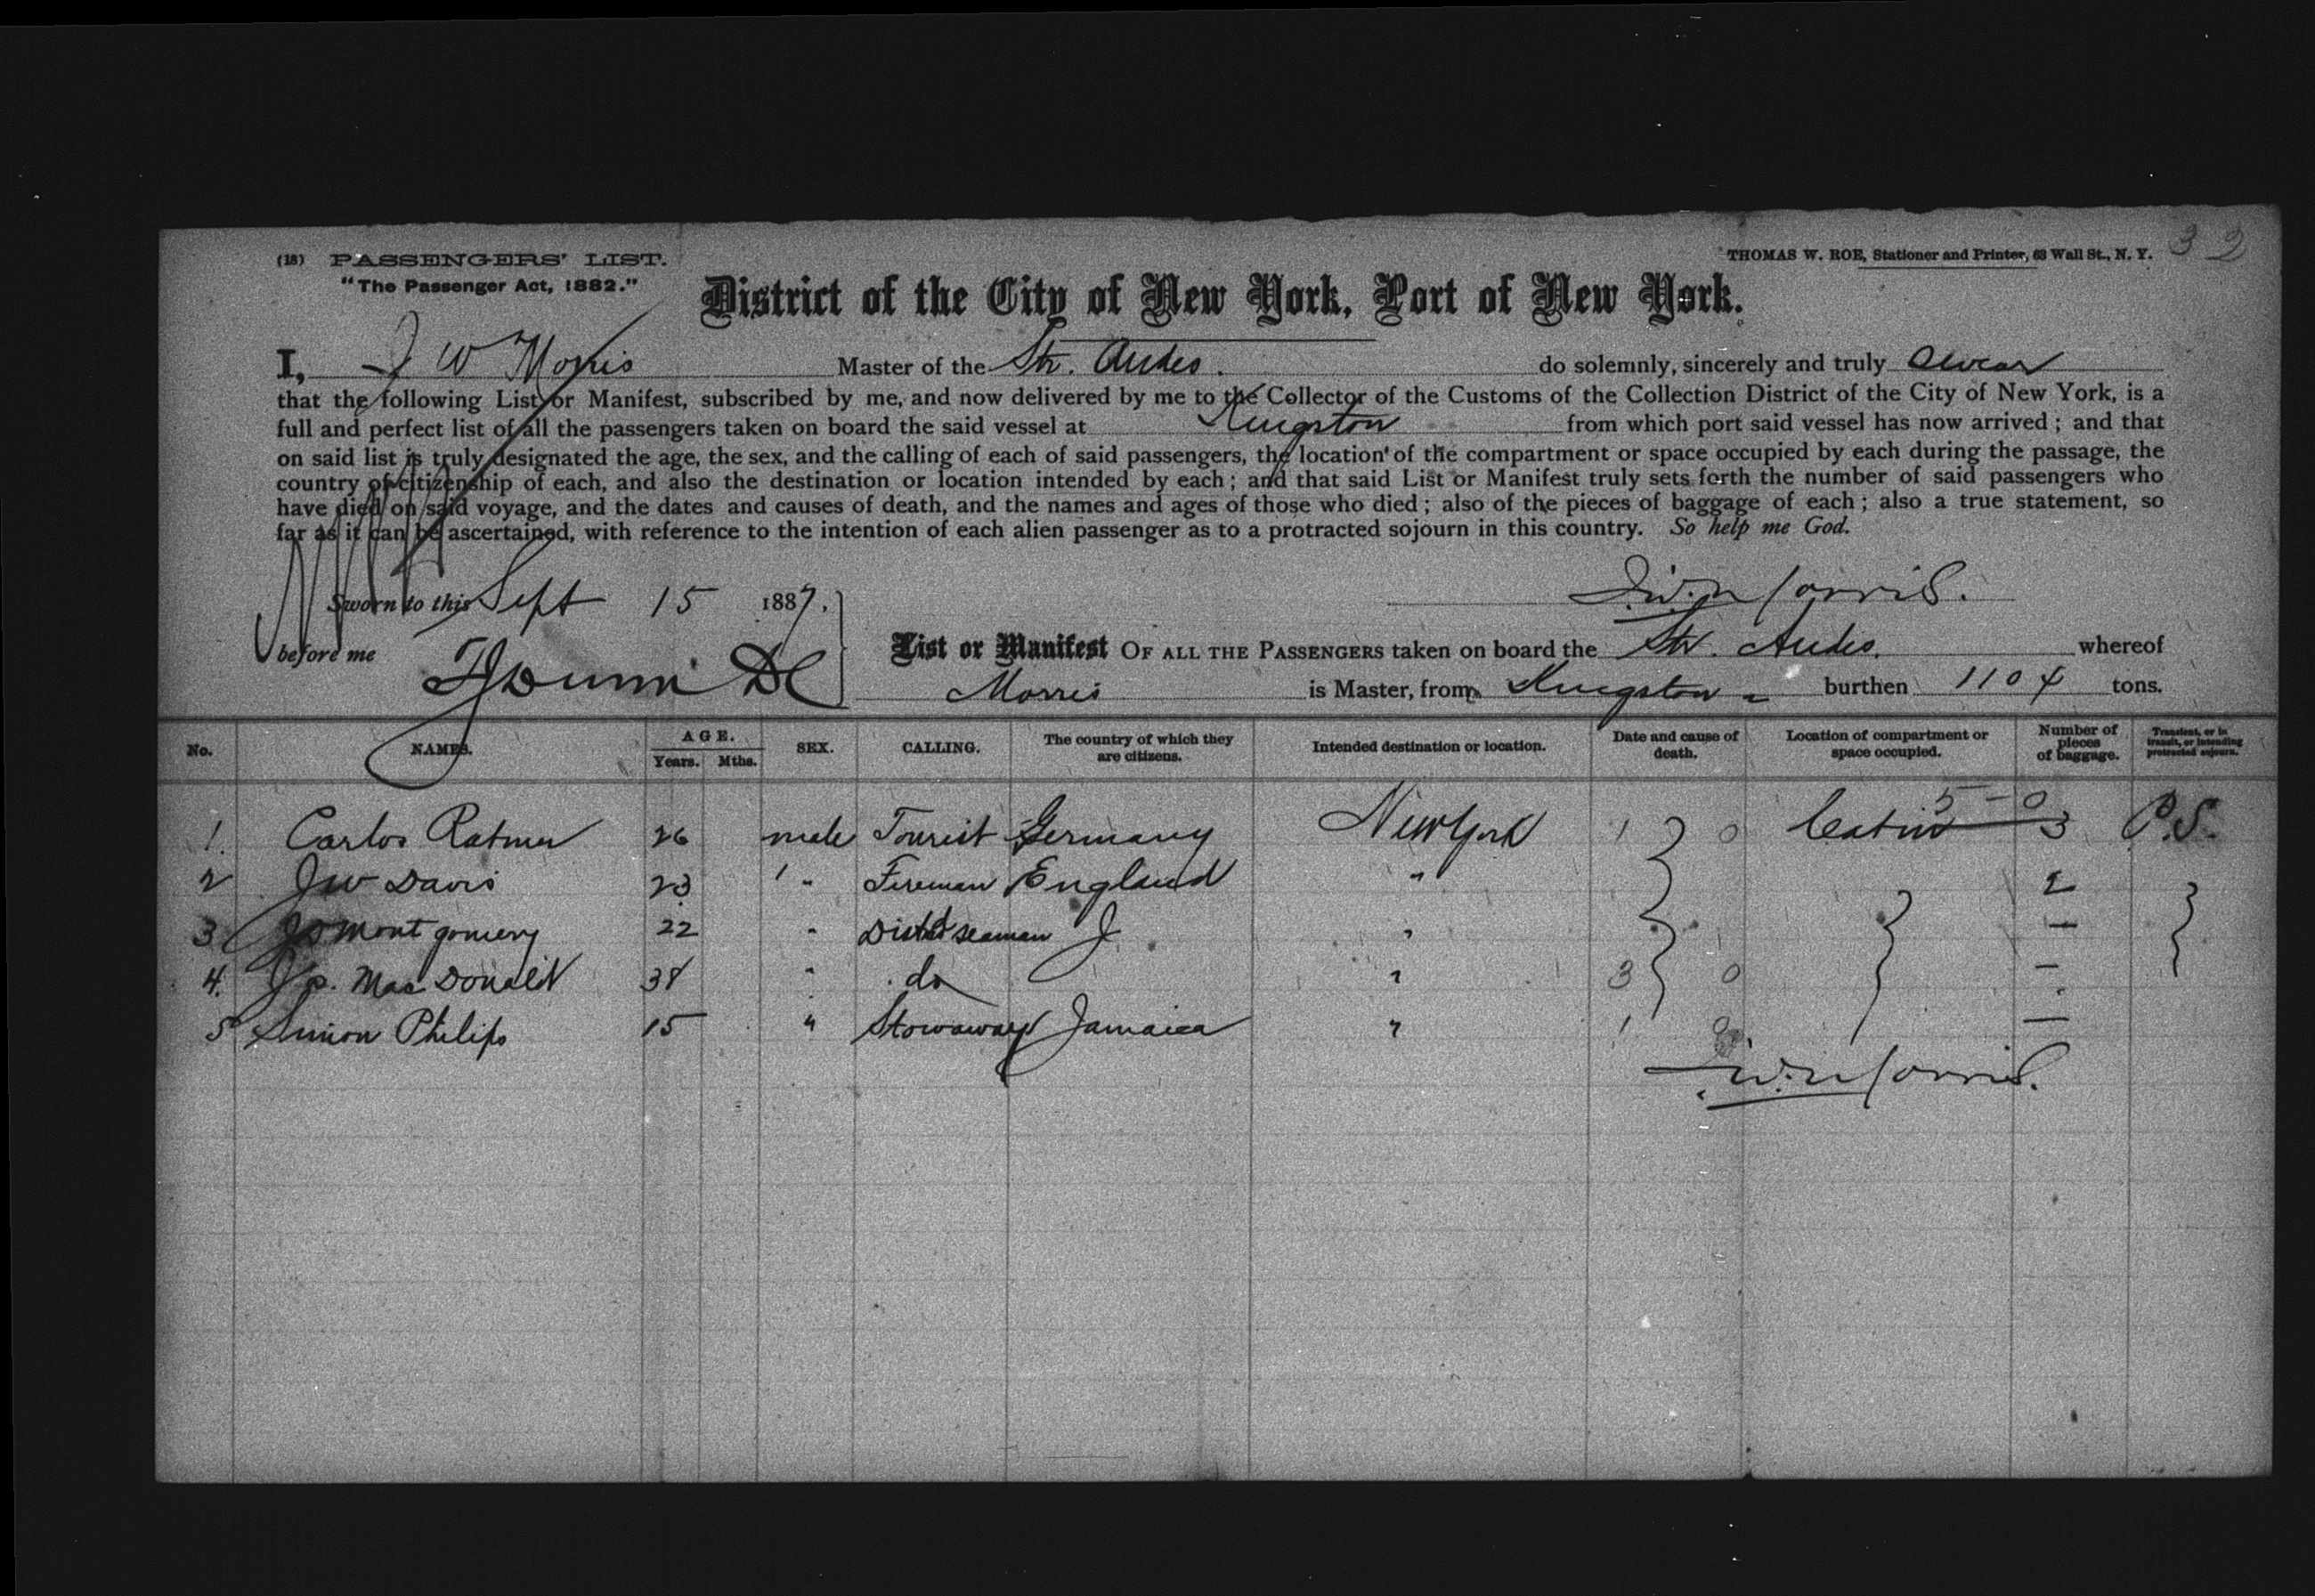 (18) PASSENGERS' LIST.
THOMAS W. ROE, Stationer and Printer, 63 Wall St., N. Y. 32
"The Passenger Act, 1882."
District of the City of New York, Port of New York.
I, J W Morris Master of the Str. Andes. do solemnly, sincerely and truly swear
that the following List or Manifest, subscribed by me, and now delivered by me to the Collector of the Customs of the Collection District of the City of New York, is a
full and perfect list of all the passengers taken on board the said vessel at Kingston from which port said vessel has now arrived; and that
on said list is truly designated the age, the sex, and the calling of each of said passengers, the location of the compartment or space occupied by each during the passage, the
country of citizenship of each, and also the destination or location intended by each; and that said List or Manifest truly sets forth the number of said passengers who
have died on said voyage, and the dates and causes of death, and the names and ages of those who died; also of the pieces of baggage of each; also a true statement, so
far as it can be ascertained, with reference to the intention of each alien passenger as to a protracted sojourn in this country. So help me God.
Sworn to this Sept 15 1887. J.W. Morris.
before me DC
List or Manifest OF ALL THE PASSENGERS taken on board the Str. Andes. whereof
Morris is Master, from Kingston burthen 1104 tons.
No. NAMES. AGE. Years. Mths. SEX. CALLING. The country of which they are citizens. Intended destination or location. Date and cause of death. Location of compartment or space occupied. Number of pieces of baggage. Transient, or in transit, or intending protracted sojourn.
5 - 0
1. Carlos 26 male Tourist Germany New York 1 0 Cabin 3 P.S.
2 JW Davis 23 " Fireman England " 2
3 Montgomery 22 " Seaman " —
4. Jp. Mac Donald 38 " do " 3 0 —
5 Simon Philips 15 " Stowaway Jamaica " 1 0 —
J.W. Morris.